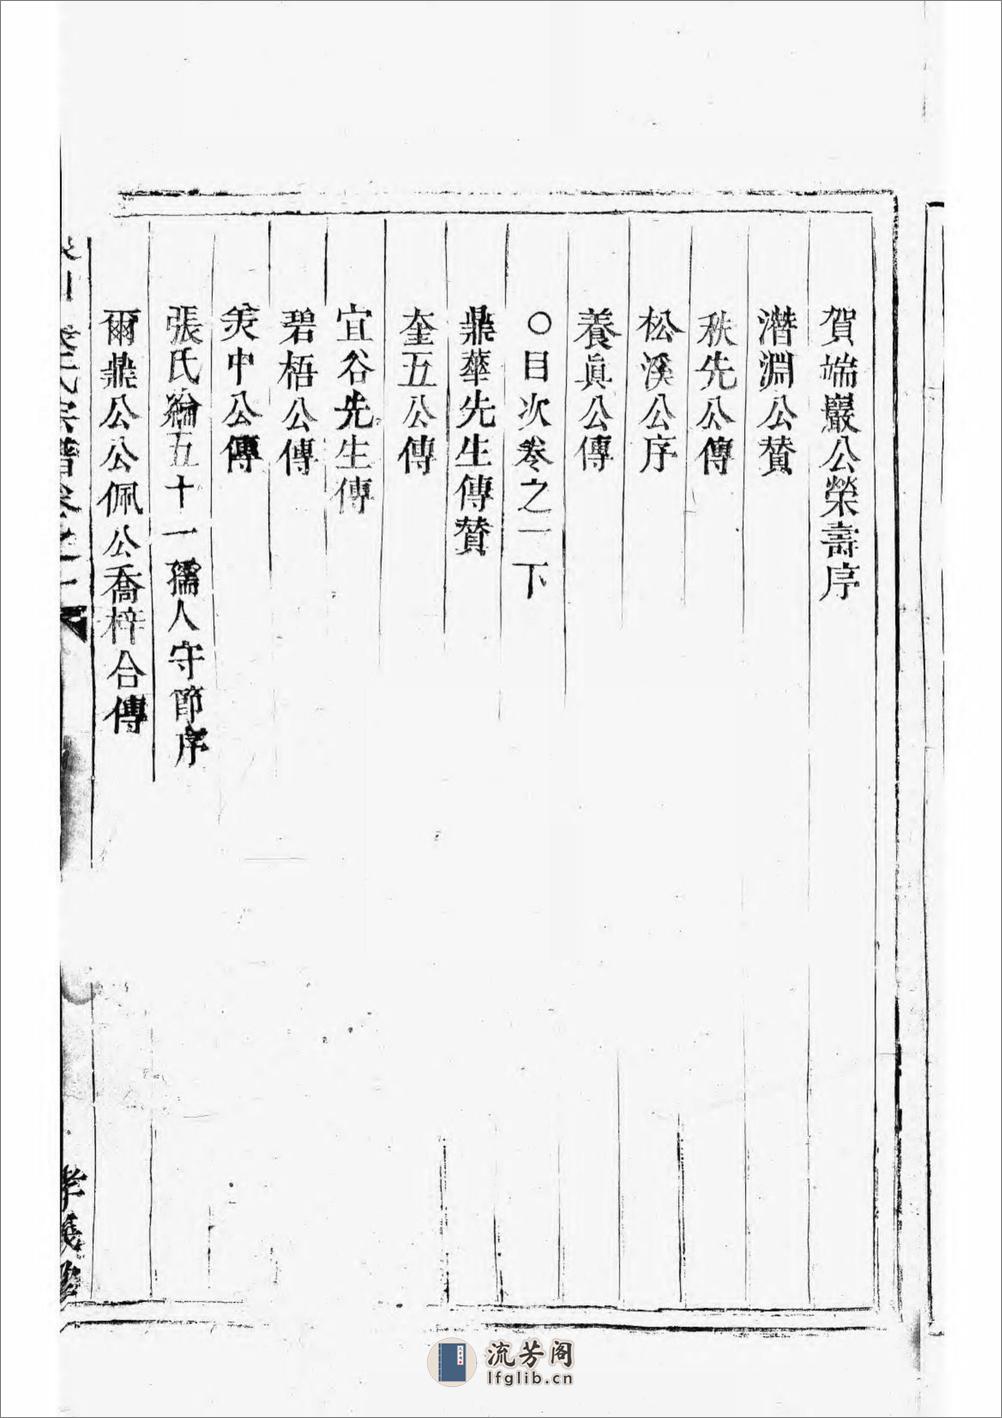 賀端巖公榮壽序
潛淵公贊
秩先公傳
松溪公序
養眞公傳
○目次卷之一下
鼎華先生傳贊
奎五公傳
宜谷先生傳
碧梧公傳
美中公傳
張氏綸五十一孺人守節序
爾鼎公公佩公喬梓合傳
氏宗譜卷之一
孝義
流芳阁
lfglib.cn